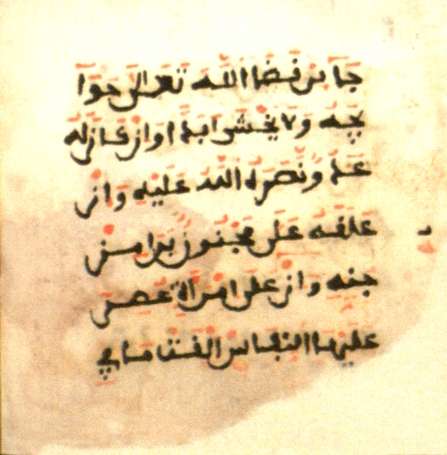 قضا الله تعالى حوا
يجه ولا يخش ابدا وان كان له
عدو نصره الله عليه وان
علقه على مجنون برا من
جنه وان على امراة عصر
عليها النفاس القت ما في